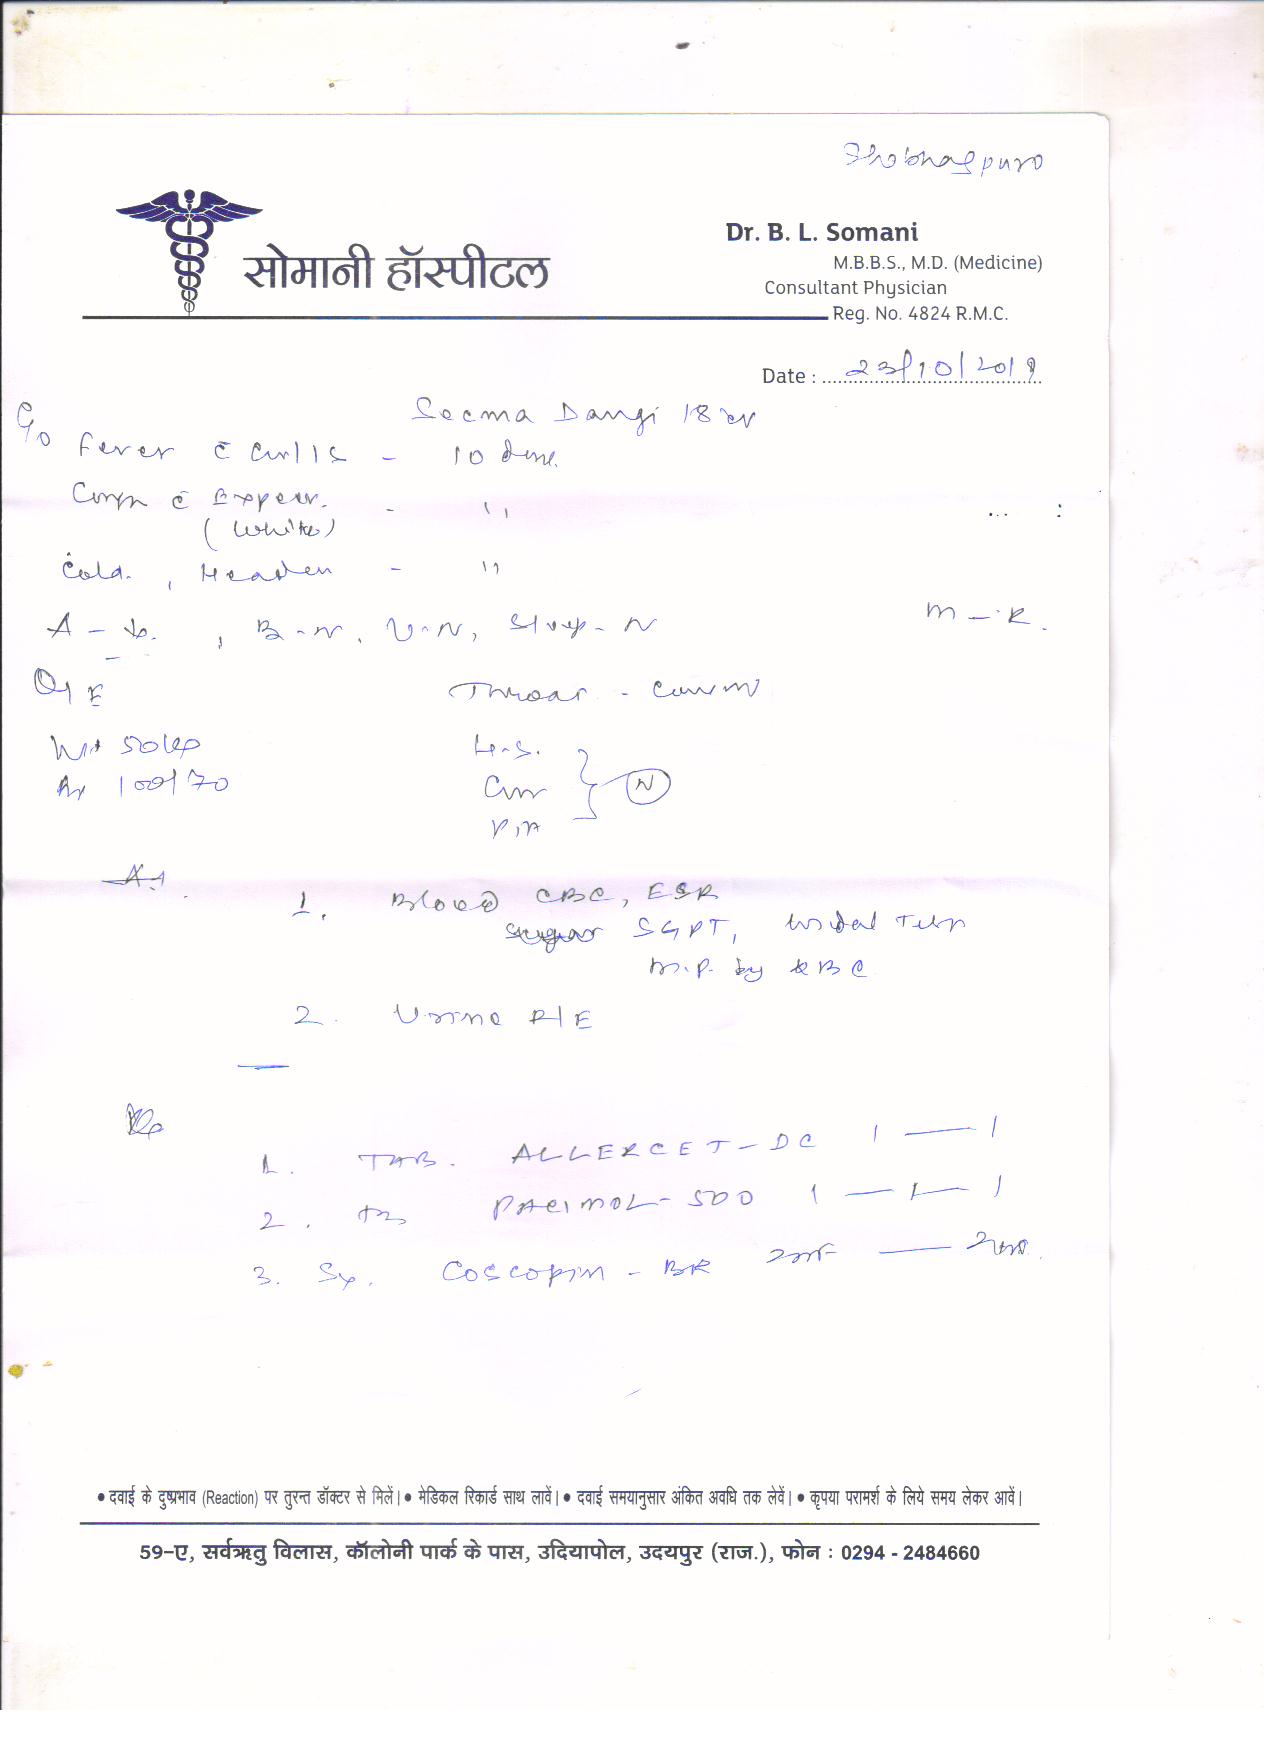 Shobhagpura
सोमानी हॉस्पीटल
Dr. B. L. Somani
M.B.B.S., M.D. (Medicine)
Consultant Physician
Reg. No. 4824 R.M.C.
Date : 23/10/2019
Seema Dangi 18 yr
C/o Fever c̄ chills - 10 days
Cough c̄ Expect. - "
(White)
Cold, Headac - "
A - ↓, B-N, U-N, Sleep-N
M - R.
O/E
Throat - Cong
Wt 50 kg
H.S.
BP 100/70
P/A
N
1. Blood CBC, ESR
Sugar SGPT, Widal Test
M.P. by QBC
2. Urine R/E
Rx
1. TAB. ALLERCET-DC 1 — 1
2. TAB PACIMOL-500 1 — 1 — 1
3. Sy. Coscopin - BR 2 — 2
• दवाई के दुष्प्रभाव (Reaction) पर तुरन्त डॉक्टर से मिलें। • मेडिकल रिकार्ड साथ लावें। • दवाई समयानुसार अंकित अवधि तक लेवें। • कृपया परामर्श के लिये समय लेकर आवें।
59-ए, सर्वऋतु विलास, कॉलोनी पार्क के पास, उदियापोल, उदयपुर (राज.), फोन : 0294 - 2484660